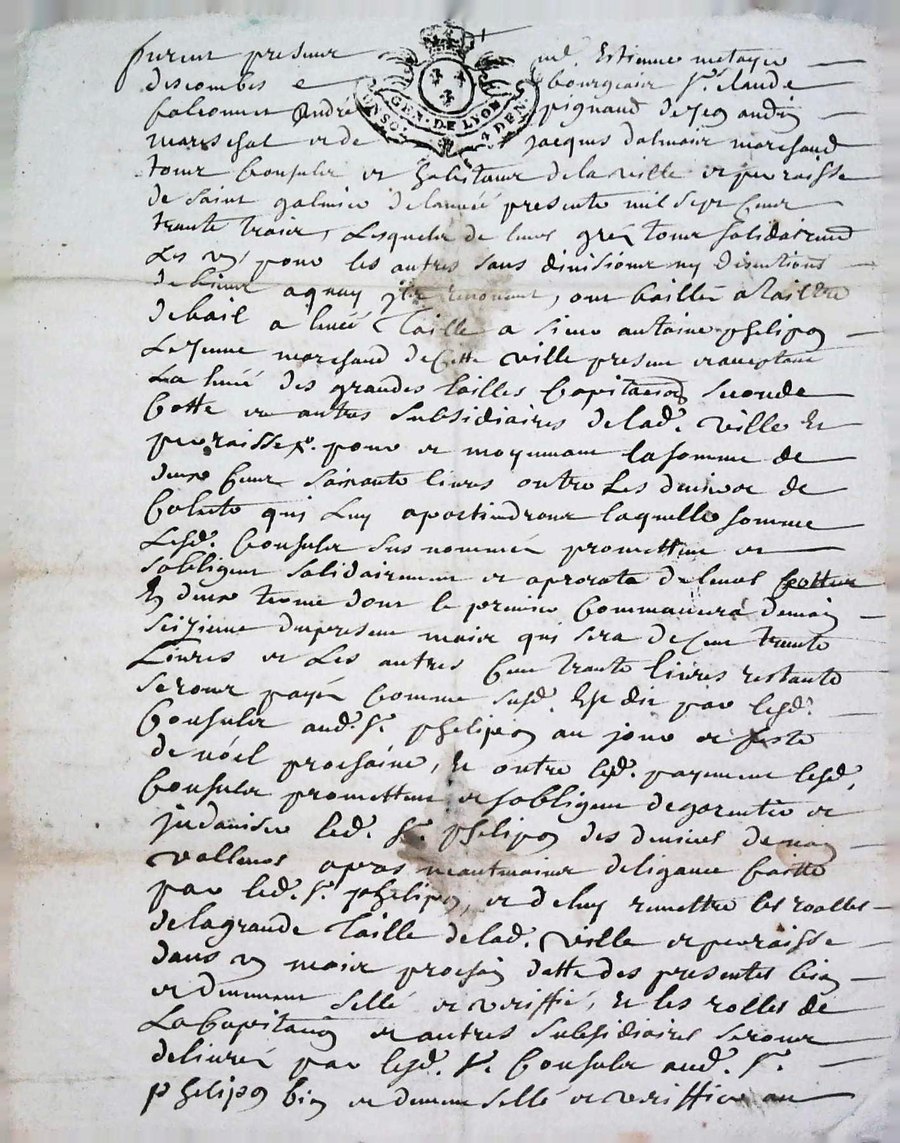 furent presens sr. Estienne metayer
descombes et bourgeois sr. claude
falconnet André pignaud de Jean andré
GEN. DE LYON
DEN
mareschal et de Jacques dalmais marchand
tous Consuls et habitans de la ville et parroisse
de saint galmier de lannée presente mil sept Cens
trante trois, Lesquels de leurs gréz tous solidairement
Les uns pour les autres sans divisions ny discutions
de biens a quoy ils renoncent, ont baillé a tailtre
de bail a levée Taille a sieur antoine phelipon
Le Jeune marchand de Cette ville present et acceptant
La levée des grandes tailles Capitation seconde
Cotte et autres subsidiaires de lad. ville Et
parroisse pour et moyennant la somme de
deux Cens soixante livres outre Les deniers de
Colecte qui Luy apartiendront laquelle somme
Lesd. Consuls sus nommés promettent et
sobligent solidairement et aprorata de leurs Cottes
En deux termes dont le premier Commancera demain
seizieme du present mois qui sera de Cent trante
Livres et Les autres Cent trante livres restante
seront payés Comme susd. Est dit par lesd.
Consuls aud. sr. phelipon au jour et feste
de nöel prochaine, Et outre led. payement lesd.
Consuls promettent et sobligent de garentir et
judaniser led. sr. phelipon des deniers de non
valleurs apres neantmoins deligance faitte
par led. sr. phelipon, et de luy remettre les roolles
de la grande Taille de lad. ville et parroisse
dans un mois prochain datte des presentes bien
et deument sellé et veriffié, Et les rolles de
La Capitation et autres subsidiaires seront
delivrés par lesd. sr. Consuls aud. sr.
phelipon bien et deument sellé et veriffiés au